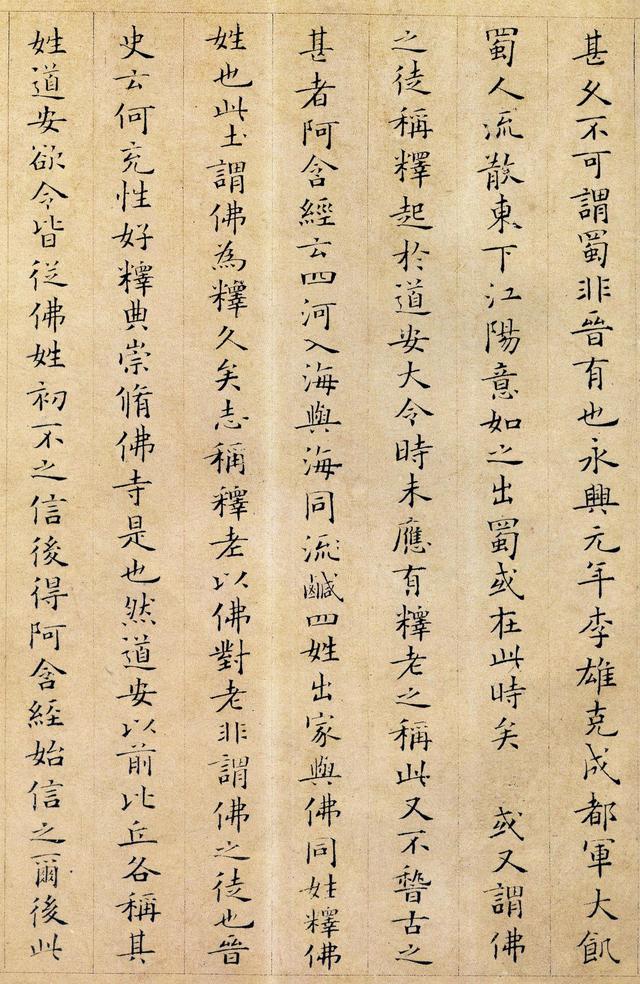 甚久不可謂蜀非晉有也永興元年李雄克成都軍大飢
蜀人流散東下江陽意如之出蜀或在此時矣　或又謂佛
之徒稱釋起於道安大令時未應有釋老之稱此又不稽古之
甚者阿含經云四河入海與海同流鹹四姓出家與佛同姓釋佛
姓也此土謂佛為釋久矣志稱釋老以佛對老非謂佛之徒也晉
史云何充性好釋典崇脩佛寺是也然道安以前比丘各稱其
姓道安欲令皆従佛姓初不之信後得阿含經始信之爾後此